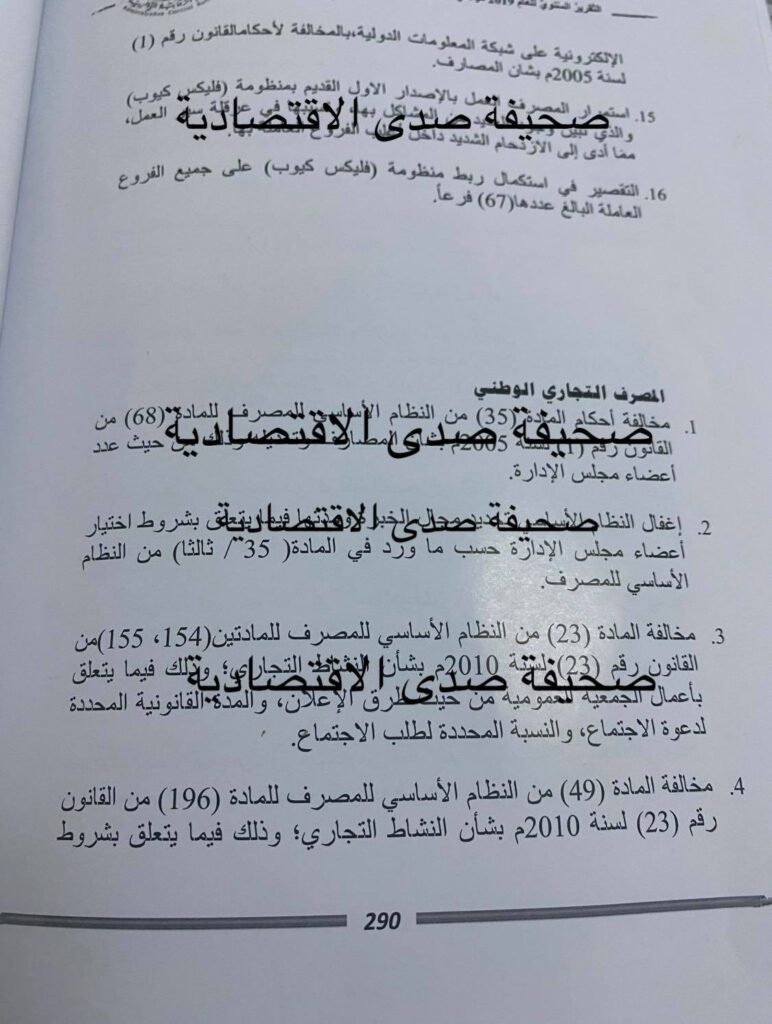 التقرير السنوي للعام 2019
الإلكترونية على شبكة المعلومات الدولية،بالمخالفة لأحكامالقانون رقم (1)
لسنة 2005م بشأن المصارف.
15. استمرار المصرف العمل بالإصدار الاول القديم بمنظومة (فليكس كيوب)
والذي تبين المشاكل بها، في عرقلة سير العمل،
صحيفة صدى الاقتصادية
مما أدى إلى الازدحام الشديد داخل الفروع العاملة بها.
16. التقصير في استكمال ربط منظومة (فليكس كيوب) على جميع الفروع
العاملة البالغ عددها(67) فرعاً.
المصرف التجاري الوطني
1. مخالفة أحكام المادة (35) من النظام الأساسي للمصرف للمادة (68) من
القانون رقم (1) لسنة 2005م بشأن المصارف من حيث عدد
صحيفة صدى الاقتصادية
أعضاء مجلس الإدارة.
2. إغفال النظام الأساسي تحديد مجال الخبرة فيما يتعلق بشروط اختيار
صحيفة صدى الاقتصادية
أعضاء مجلس الإدارة حسب ما ورد في المادة( 35 / ثالثا) من النظام
الأساسي للمصرف.
3. مخالفة المادة (23) من النظام الأساسي للمصرف للمادتين(154، 155)من
القانون رقم (23) لسنة 2010م بشأن النشاط التجاري؛ وذلك فيما يتعلق
صحيفة صدى الاقتصادية
بأعمال الجمعية العمومية من حيث طرق الإعلان، والمدة القانونية المحددة
لدعوة الاجتماع، والنسبة المحددة لطلب الاجتماع.
4. مخالفة المادة (49) من النظام الأساسي للمصرف للمادة (196) من القانون
رقم (23) لسنة 2010م بشأن النشاط التجاري؛ وذلك فيما يتعلق بشروط
290